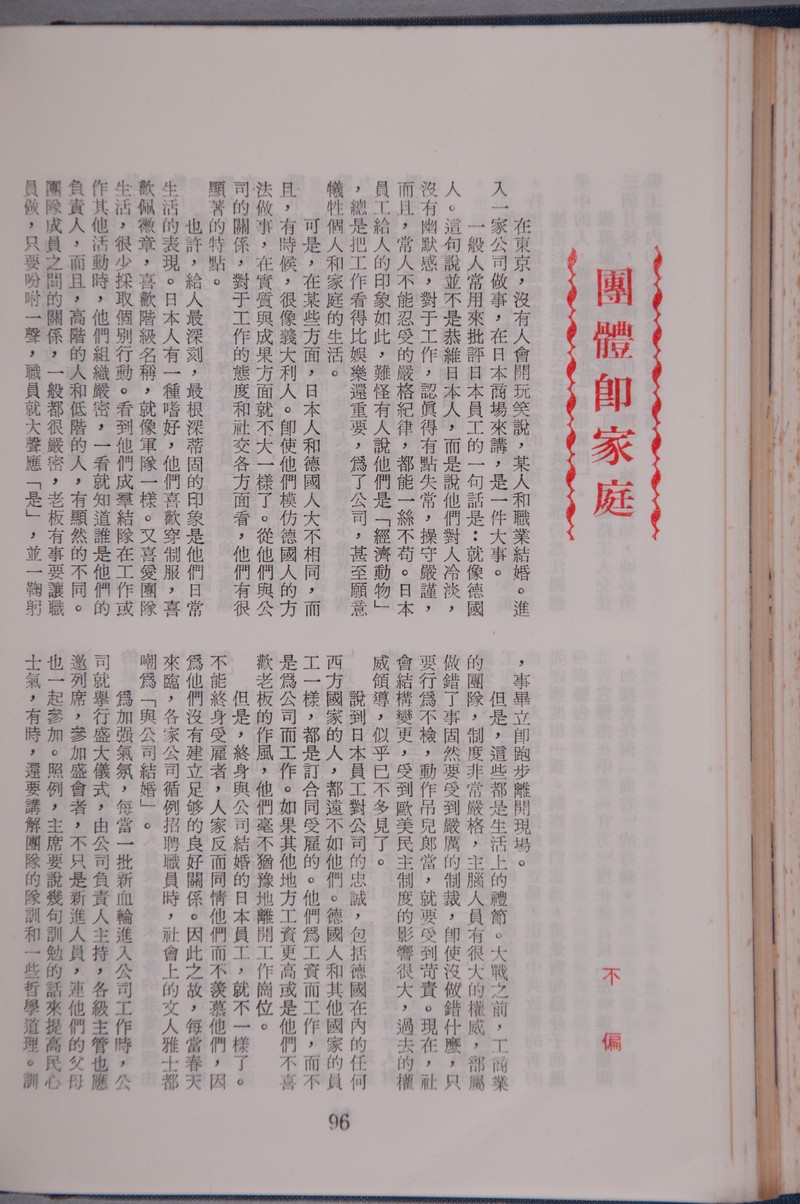 團體卽家庭
不偏
在東京，沒有人會開玩笑說，某人和職業結婚。進
入一家公司做事，在日本商場來講，是一件大事。
一般人常用來批評日本員工的一句話是：就像德國
人。這句說並不是恭維日本人，而是說他們對人冷淡，
沒有幽默感，對于工作，認眞得有點失常，操守嚴謹，
而且，常人不能忍受的嚴格紀律，都能一絲不苟。日本
員工給人的印象如此，難怪有人說他們是「經濟動物」
，總是把工作看得比娛樂還重要，爲了公司，甚至願意
犧牲個人和家庭的生活。
可是，在某些方面，日本人和德國人大不相同，而
且，有時候，很像義大利人。卽使他們模仿德國人的方
法做事，在實質與成果方面就不大一樣了。從他們與公
司的關係，對于工作的態度和社交各方面看，他們有很
顯著的特點。
也許，給人最深刻，最根深蒂固的印象是他們日常
生活的表現。日本人有一種嗜好，他們喜歡穿制服，喜
歡佩徽章，喜歡階級名稱，就像軍隊一樣。又喜愛團隊
生活，很少採取個別行動。看到他們成羣結隊在工作或
作其他活動時，他們組織嚴密，一看就知道誰是他們的
負責人，而且，高階的人和低階的人，有顯然的不同。
團隊成員之間的關係，一般都很嚴密，老板有事要讓職
員做，只要吩咐一聲，職員就大聲應「是」，並一鞠躬
，事畢立卽跑步離開現場。
但是，這些都是生活上的禮節。大戰之前，工商業
的團隊，制度非常嚴格，主腦人員有很大的權威，部屬
做錯了事固然要受到嚴厲的制裁，卽使沒做錯什麼，只
要行爲不檢，動作吊兒郎當，就要受到苛責。現在，社
會結構變更，受到歐美民主制度的影響很大，過去的權
威領導，似乎已不多見了。
說到日本員工對公司的忠誠，包括德國在內的任何
西方國家的人，都遠不如他們。德國人和其他國家的員
工一樣，都是訂合同受雇的。他們爲工資而工作，而不
是爲公司而工作。如果其他地方工資更高或是他們不喜
歡老板的作風，他們毫不猶豫地離開工作崗位。
但是，終身與公司結婚的日本員工，就不一樣了。
不能終身受雇者，人家反而同情他們而不羨慕他們，因
爲他們沒有建立足够的良好關係。因此之故，每當春天
來臨，各家公司循例招聘職員時，社會上的文人雅士都
嘲爲「與公司結婚」。
爲加强氣氛，每當一批新血輪進入公司工作時，公
司就舉行盛大儀式，由公司負責人主持，各級主管也應
邀列席，參加盛會者，不只是新進人員，連他們的父母
也一起參加。照例，主席要說幾句訓勉的話來提高民心
士氣，有時，還要講解團隊的隊訓和一些哲學道理。訓
96